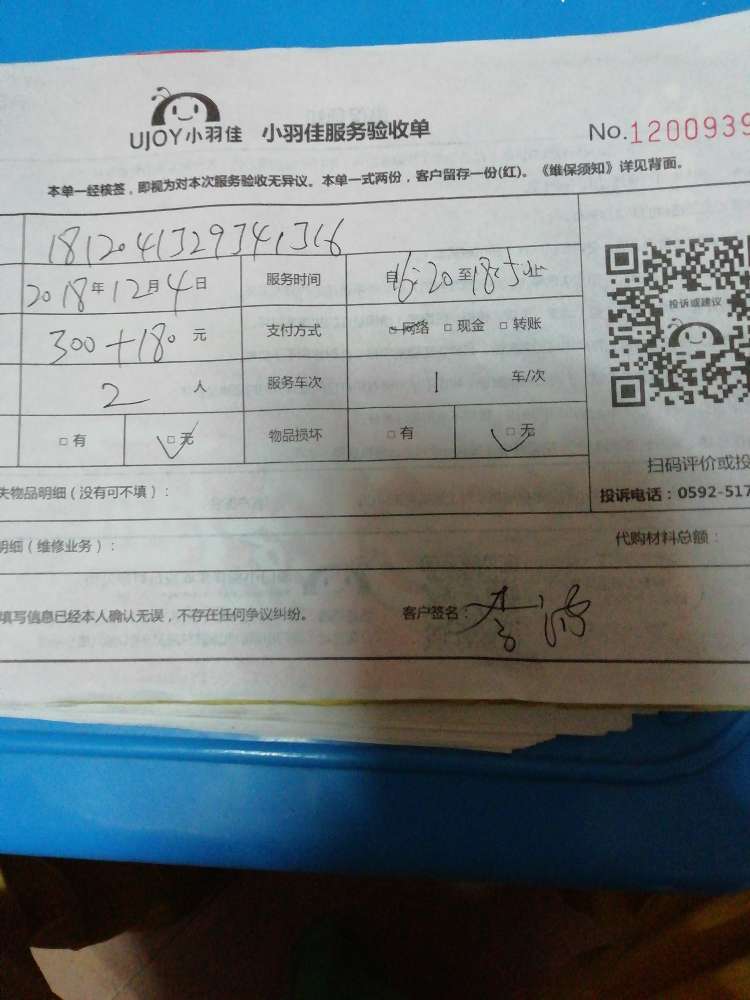 UJOY小羽佳 小羽佳服务验收单 No.1200939
本单一经核签，即视为对本次服务验收无异议。本单一式两份，客户留存一份(红)。《维保须知》详见背面。
1812041329341316
2018年12月4日 服务时间 自16:20至18:5止
投诉或建议
300+180元 支付方式 □网络 □现金 □转账
2人 服务车次 1车/次
□有 □无 物品损坏 □有 □无
扫码评价或投
失物品明细（没有可不填）： 投诉电话：0592-517
明细（维修业务）： 代购材料总额：
填写信息已经本人确认无误，不存在任何争议纠纷。 客户签名：